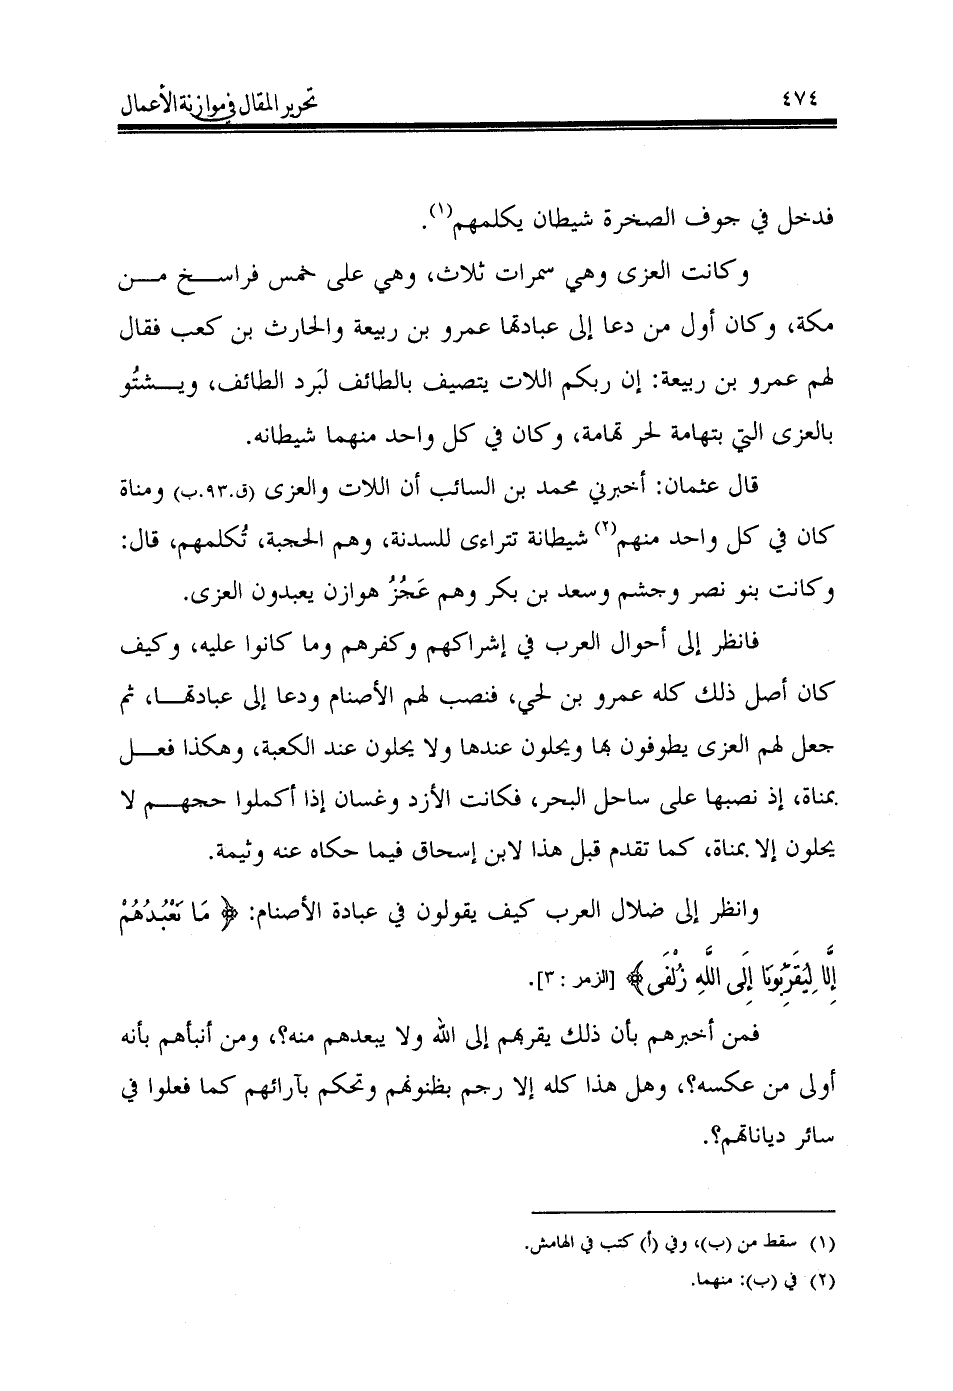 ٤٧٤
تحرير المقال في موازنة الأعمال
فدخل في جوف الصخرة شيطان يكلمهم(١).
وكانت العزى وهي سمرات ثلاث، وهي على خمس فراسـخ مـن
مكة، وكان أول من دعا إلى عبادتها عمرو بن ربيعة والحارث بن كعب فقال
لهم عمرو بن ربيعة: إن ربكم اللات يتصيف بالطائف لبَرد الطائف، ويـشتُو
بالعزى التي بتهامة لحر تهامة، وكان في كل واحد منهما شيطانه.
قال عثمان: أخبرني محمد بن السائب أن اللات والعزى (ق.٩٣.ب) ومناة
كان في كل واحد منهم(٢) شيطانة تتراءى للسدنة، وهم الحجبة، تُكلمهم، قال:
وكانت بنو نصر وجشم وسعد بن بكر وهم عَجُزُ هوازن يعبدون العزى.
فانظر إلى أحوال العرب في إشراكهم وكفرهم وما كانوا عليه، وكيف
كان أصل ذلك كله عمرو بن لحي، فنصب لهم الأصنام ودعا إلى عبادتهـا، ثم
جعل لهم العزى يطوفون بها ويحلون عندها ولا يحلون عند الكعبة، وهكذا فعـل
بمناة، إذ نصبها على ساحل البحر، فكانت الأزد وغسان إذا أكملوا حجهـم لا
يحلون إلا بمناة، كما تقدم قبل هذا لابن إسحاق فيما حكاه عنه وثيمة.
وانظر إلى ضلال العرب كيف يقولون في عبادة الأصنام: ﴿ مَا نَعْبُدُهُمْ
إِلَّا لِيُقَرِّبُونَا إِلَى اللَّهِ زُلْفَى﴾ [الزمر : ٣].
فمن أخبرهم بأن ذلك يقربهم إلى الله ولا يبعدهم منه؟، ومن أنبأهم بأنه
أولى من عكسه؟، وهل هذا كله إلا رجم بظنونهم وتحكم بآرائهم كما فعلوا في
سائر دياناتهم؟.
(١) سقط من (ب)، وفي (أ) كتب في الهامش.
(٢) في (ب): منهما.